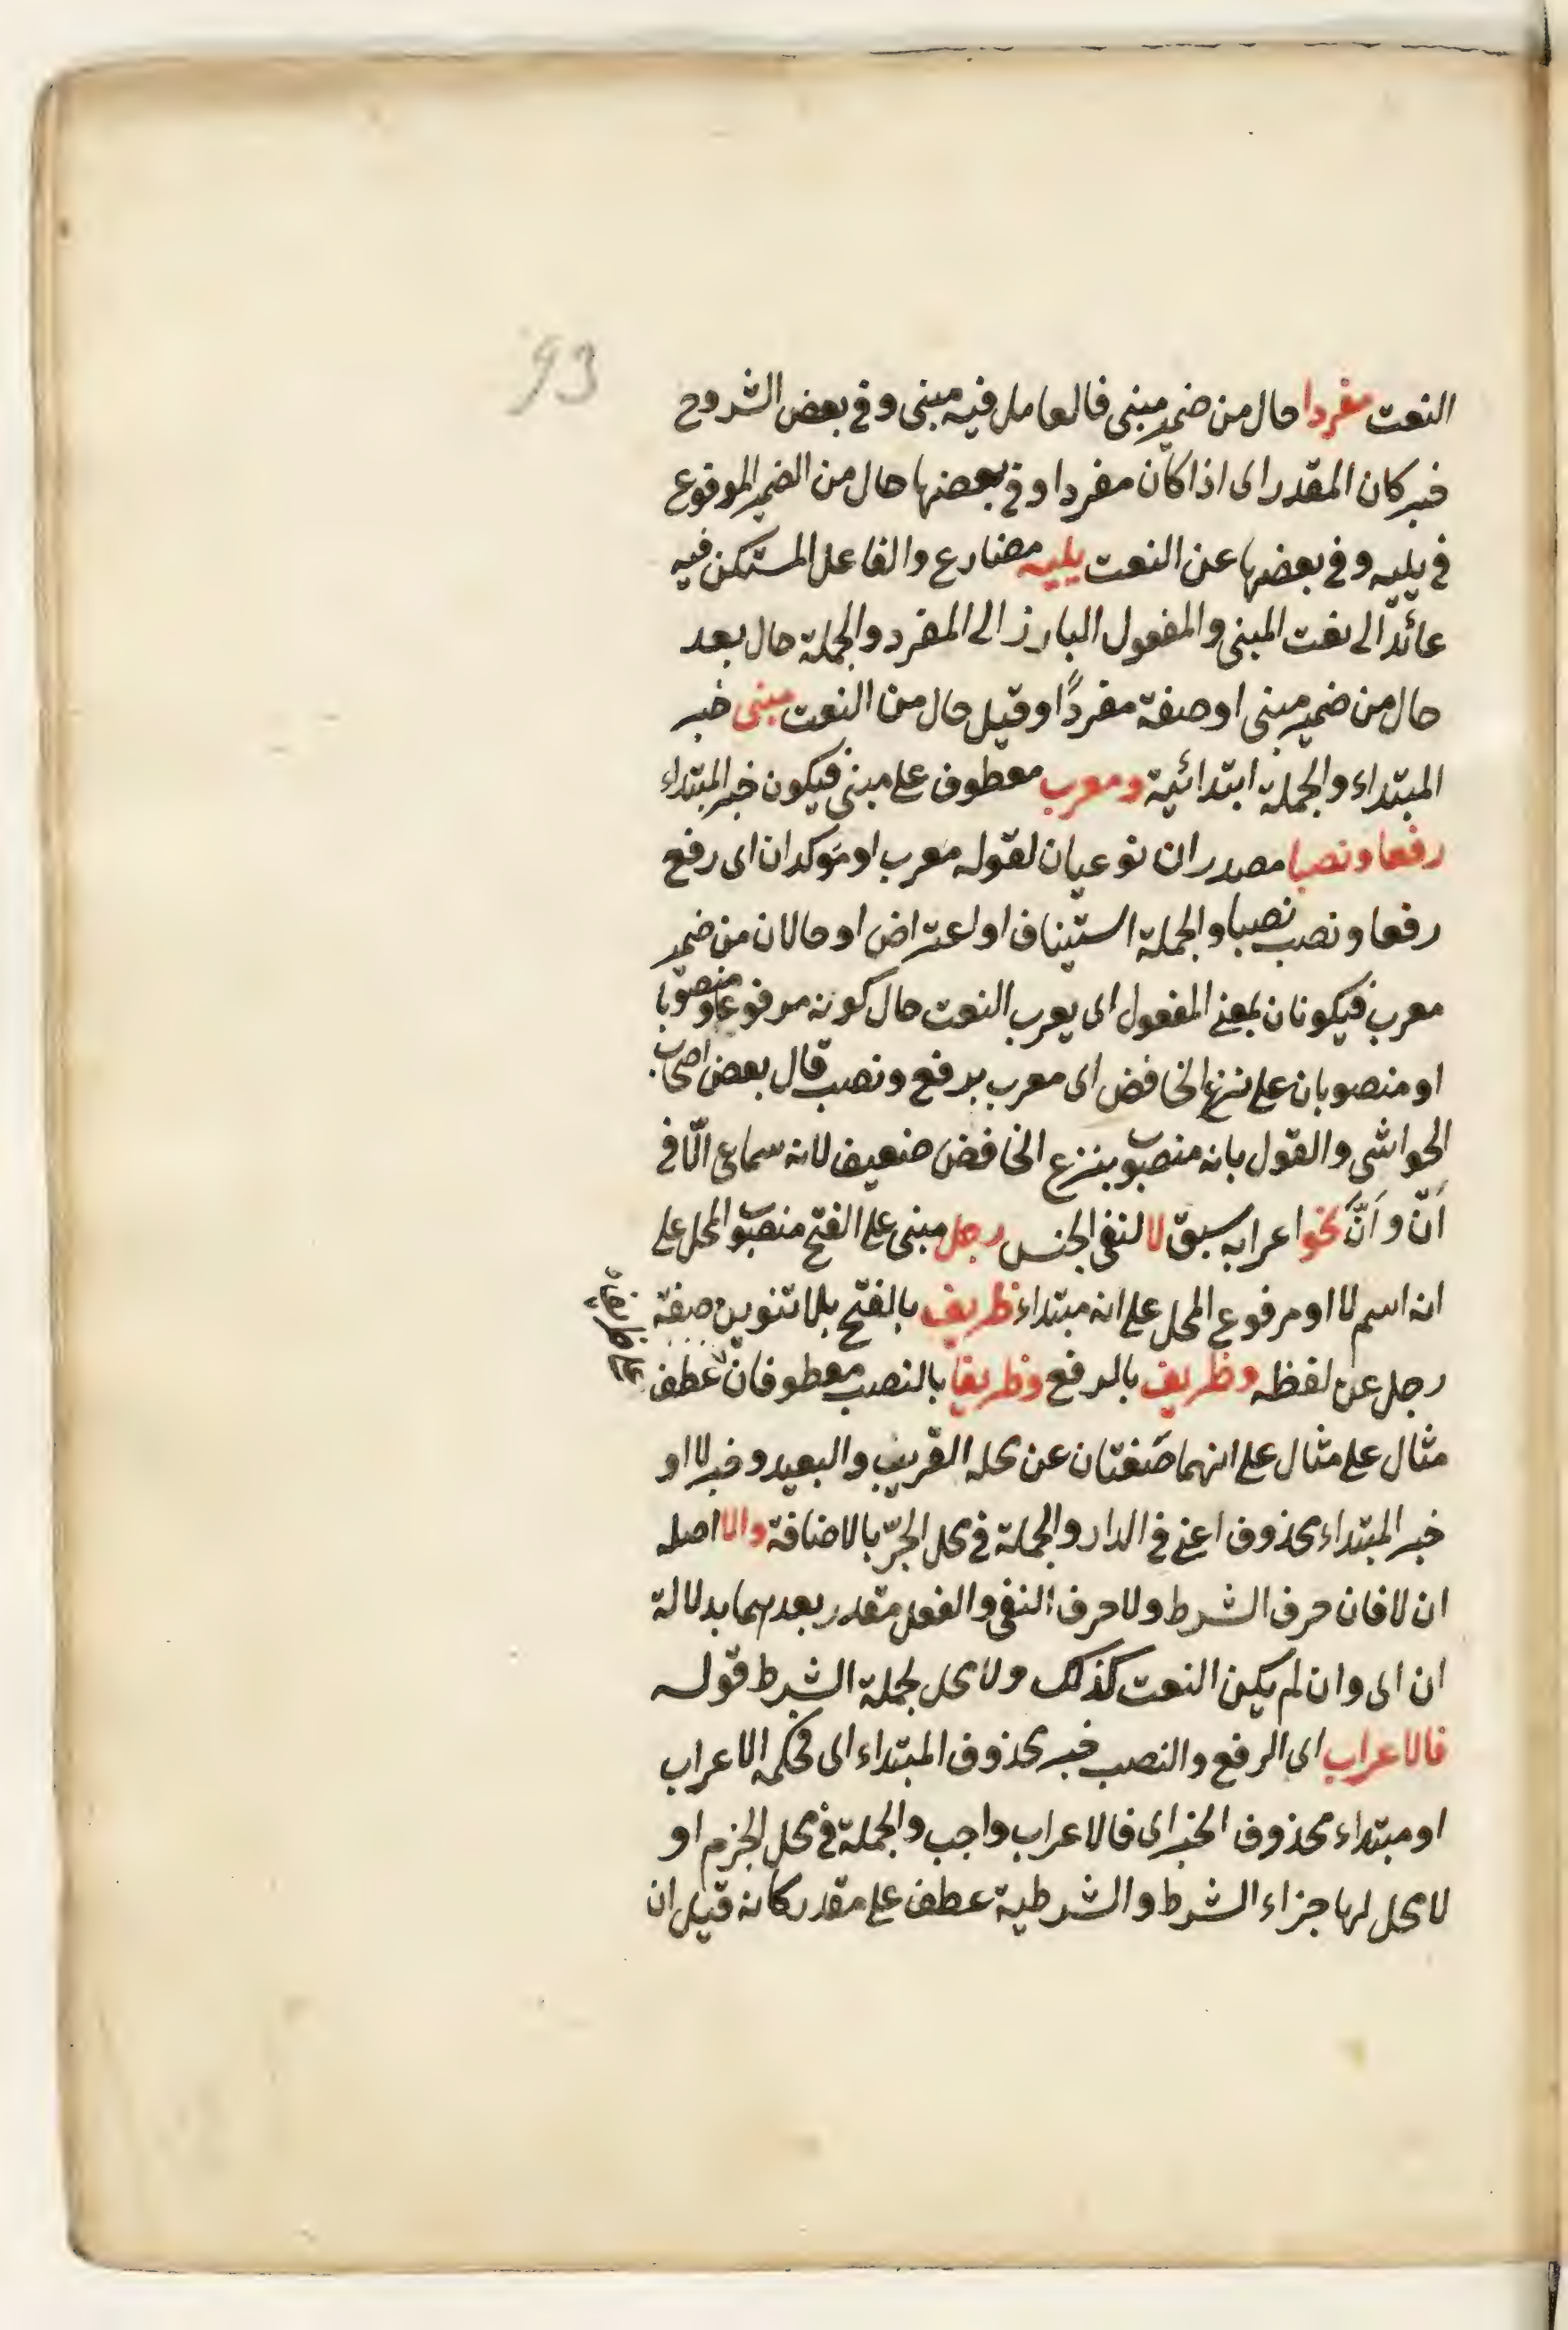 93
النعت مفردا حال من ضمير مبنى فالعامل فيه مبنى و فى بعض الشروح
خبر كان المقدر اى اذا كان مفردا و فى بعضها حال من الضمير المرفوع
فى يليه و فى بعضها عن النعت يليه مضارع والفاعل المستكن فيه
عائد الى نعت المبنى والمفعول البارز الى المفرد والجملة حال بعد
حال من ضمير مبنى او صفة مفردًا و قيل حال من النعت مبنى خبر
المبتداء والجملة ابتدائية و معرب معطوف على مبنى فيكون خبر المبتداء
رفعا و نصبا مصدران نوعيان لقوله معرب او مؤكدان اى رفع
رفعا و نصب نصبا والجملة استيناف او اعتراض او حالان من ضمير
معرب فيكونان بمعنى المفعول اى يعرب النعت حال كونه مرفوعا و منصوبا
او منصوبان على نزع الخافض اى معرب برفع و نصب قال بعض اصحاب
الحواشى والقول بانه منصوب بنزع الخافض ضعيف لانه سماعى الّا فى
اَنْ و اَنَّ نحو اعرابه سبق لا لنفى الجنس رجل مبنى على الفتح منصوب المحل على
انه اسم لا او مرفوع المحل على انه مبتداء ظريف بالفتح بلا تنوين صفة
رجل عن لفظه و ظريف بالرفع و ظريفا بالنصب معطوفان عطف
مثال على مثال على انهما صفتان عن محله القريب والبعيد و خبر لا او
خبر المبتداء محذوف اعنى فى الدار والجملة فى محل الجرّ بالاضافة والا اصله
ان لا فان حرف الشرط و لا حرف النفى والفعل مقدر بعدهما بدلالة
ان اى وان لم يكن النعت كذلك ولا محل لجملة الشرط قوله
فالاعراب اى الرفع والنصب خبر محذوف المبتداء اى فحكمه الاعراب
او مبتداء محذوف الخبر اى فالاعراب واجب والجملة فى محل الجزم او
لا محل لها جزاء الشرط والشرطية عطف على مقدر كانه قيل ان